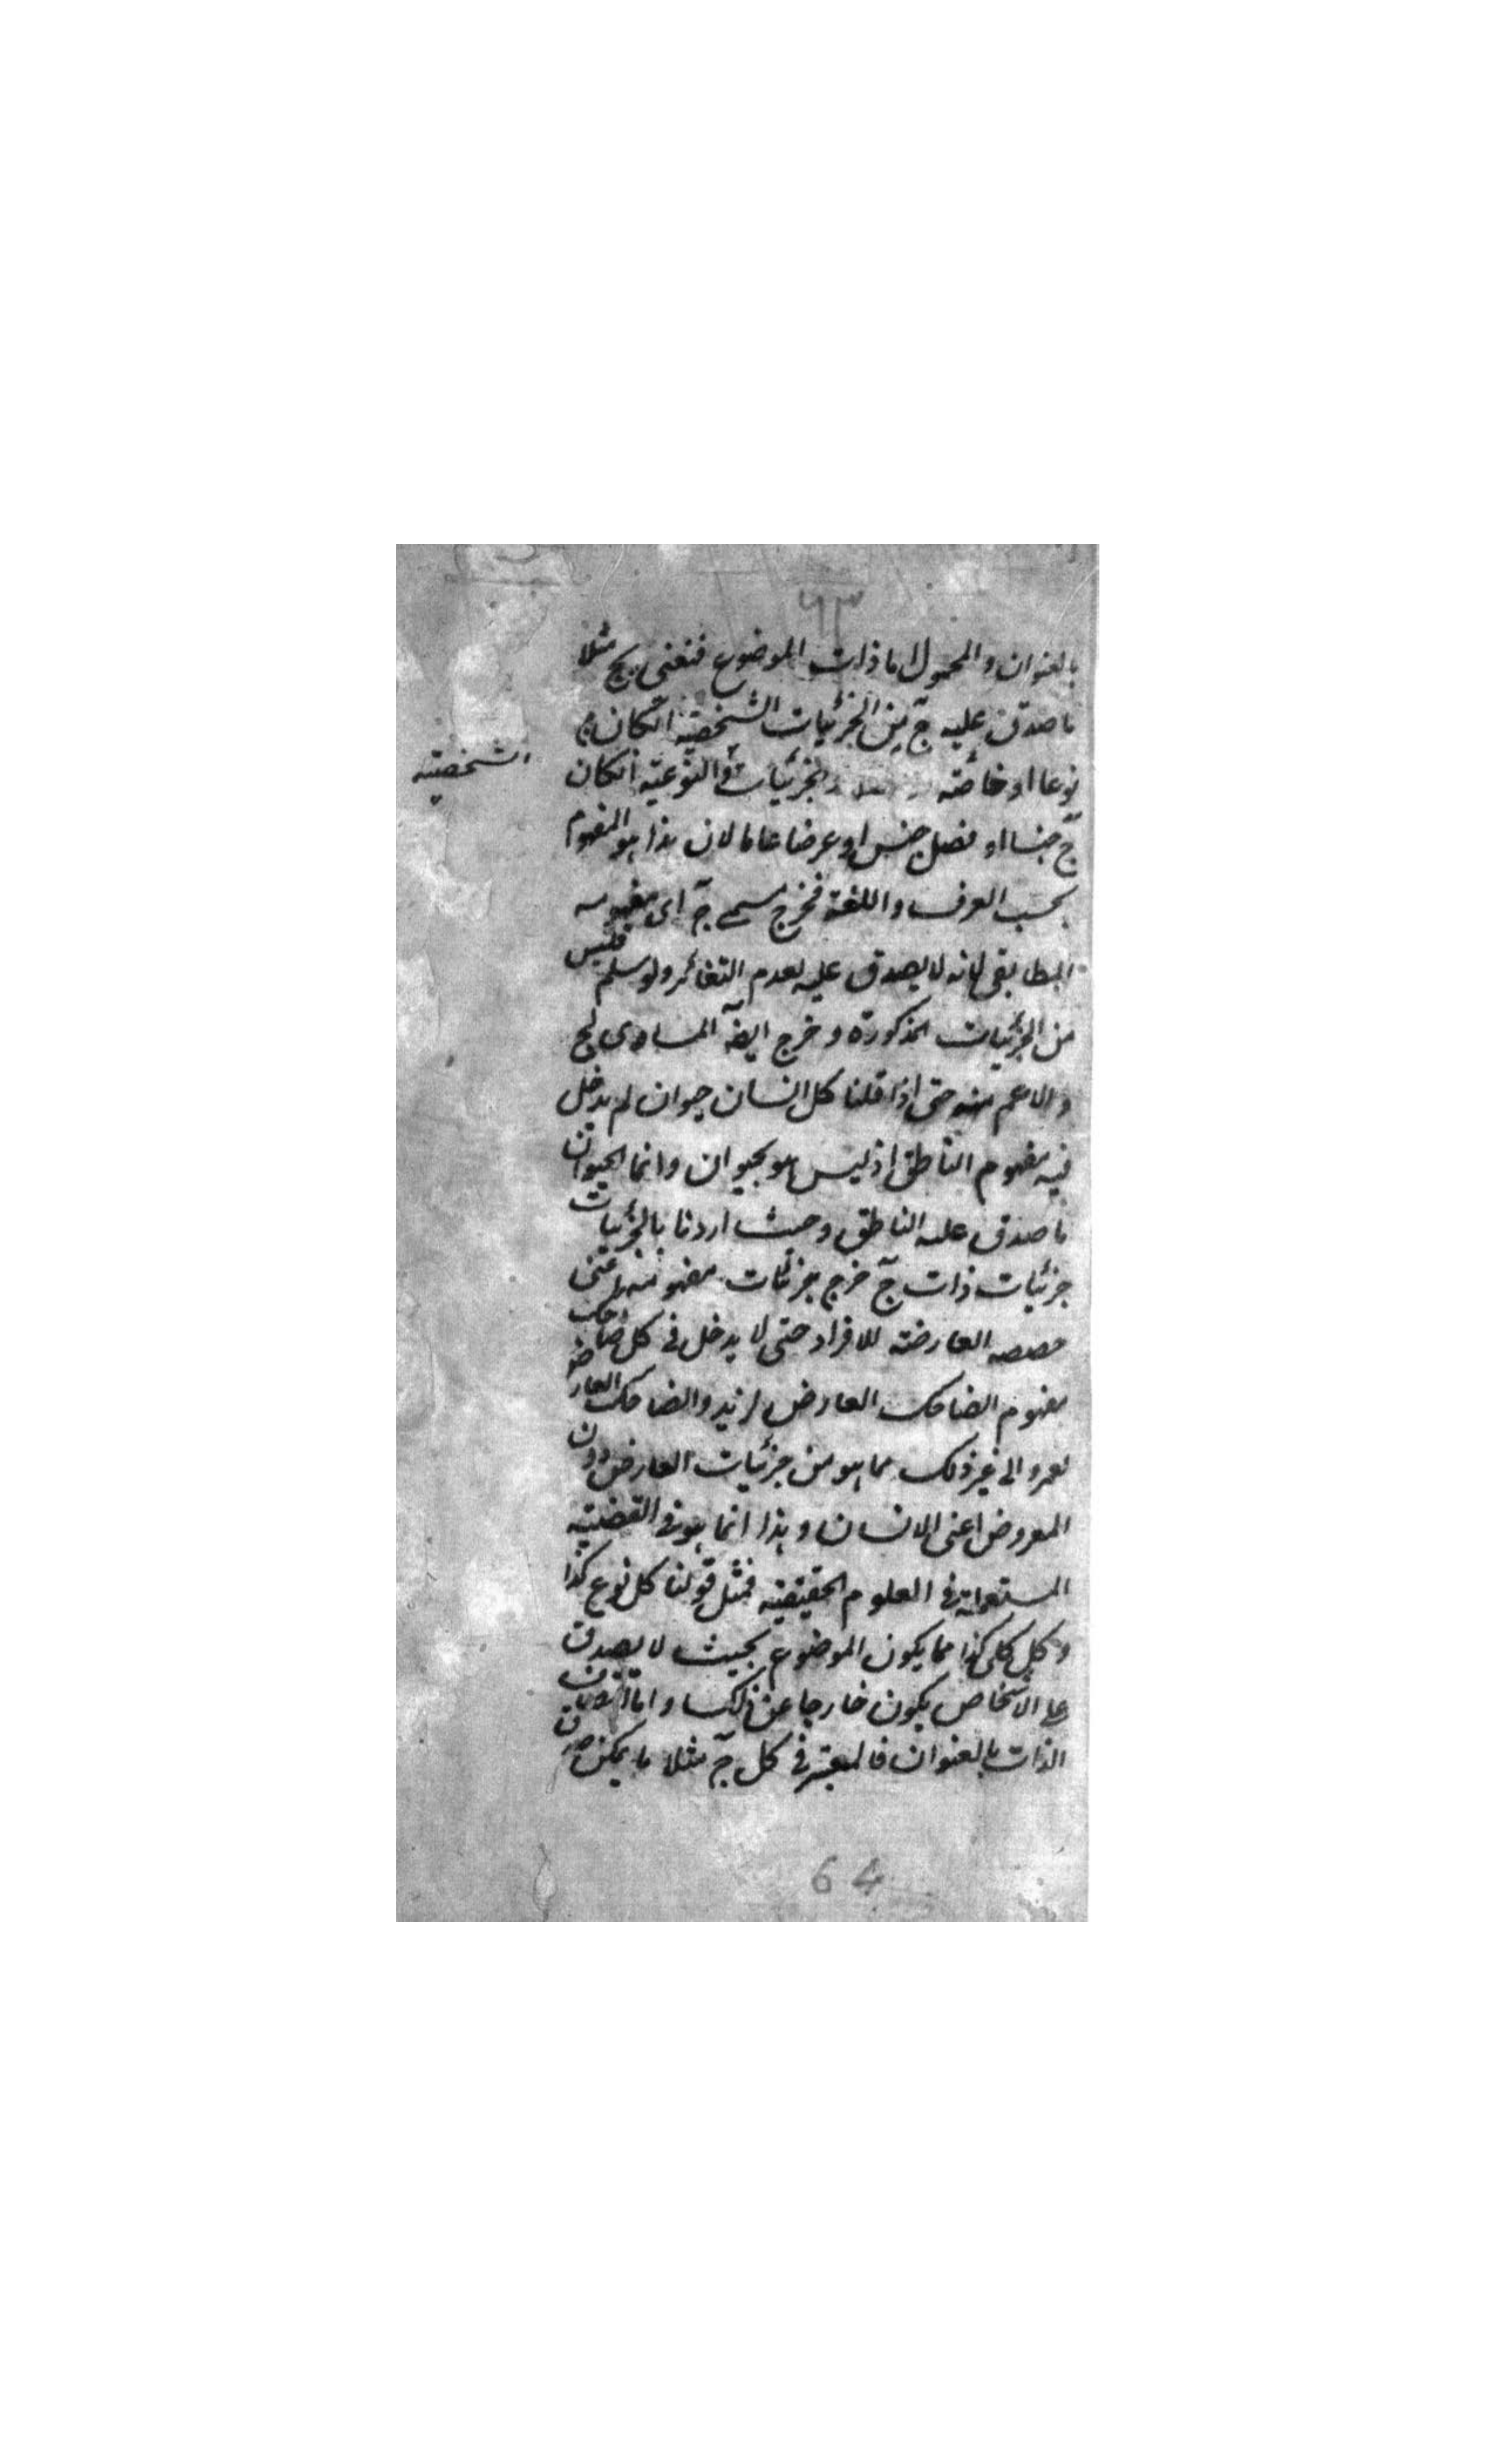 ٦٣
بالعنوان والمحمول اما ذات الموضوع فنعنى بج مثلا
ما صدق عليه ج من الجزئيات الشخصية انكان ج
نوعا او خاصته والجزئيات و النوعية انكان
الشخصية
ج جنسا او فصل جنس او عرضا عاما لان هذا هو المفهوم
بحسب العرف واللغة فخرج مسمى ج اى مفهومه
المطابقى لانه لا يصدق عليه لعدم التغائر ولو سلم فليس
من الجزئيات المذكورة وخرج ايضا المساوى لج
والاعم منه حتى اذا قلنا كل انسان حيوان لم يدخل
فيه مفهوم الناطق اذ ليس هو بحيوان وانما الحيوان
ما صدق عليه الناطق وحيث اردنا بالجزئيات
جزئيات ذات ج خرج جزئيات مفهومه اعنى
حصصه العارضة للافراد حتى لا يدخل فى كل ضاحك
مفهوم الضاحك العارض لزيد والضاحك العارض
لعمرو الى غير ذلك مما هو من جزئيات العارض دون
المعروض اعنى الانسان وهذا انما هو فى القضية
المستعملة فى العلوم الحقيقية فمثل قولنا كل نوع كذا
وكل كلى كذا مما يكون الموضوع بحيث لا يصدق
على الاشخاص يكون خارجا عن ذلك واما
الذات بالعنوان فالمعتبر فى كل ج مثلا ما يمكن صدق
64